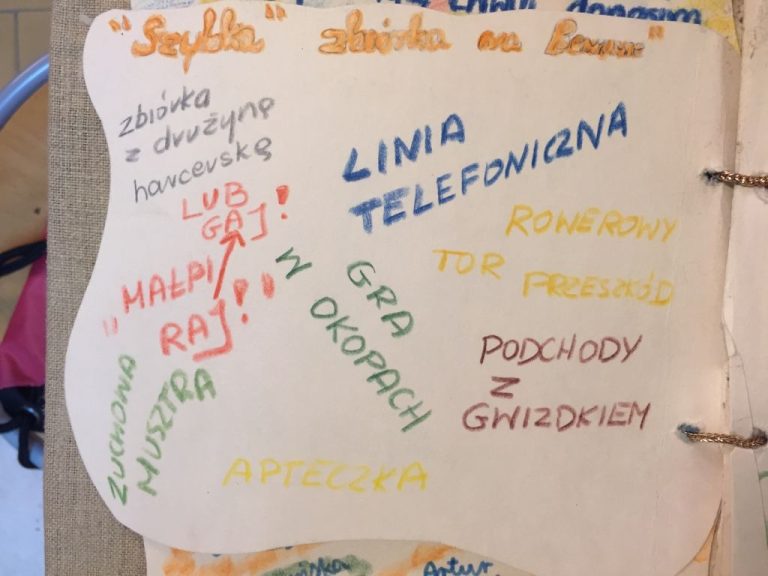 "Szybka" zbiórka na
zbiórka
z drużyną
harcerską
LUB
GAJ!
"MAŁPI
RAJ!"
LINIA
TELEFONICZNA
ROWEROWY
TOR PRZESZKÓD
GRA
W OKOPACH
PODCHODY
Z
GWIZDKIEM
ZUCHOWA
MUSZTRA
APTECZKA
Artur